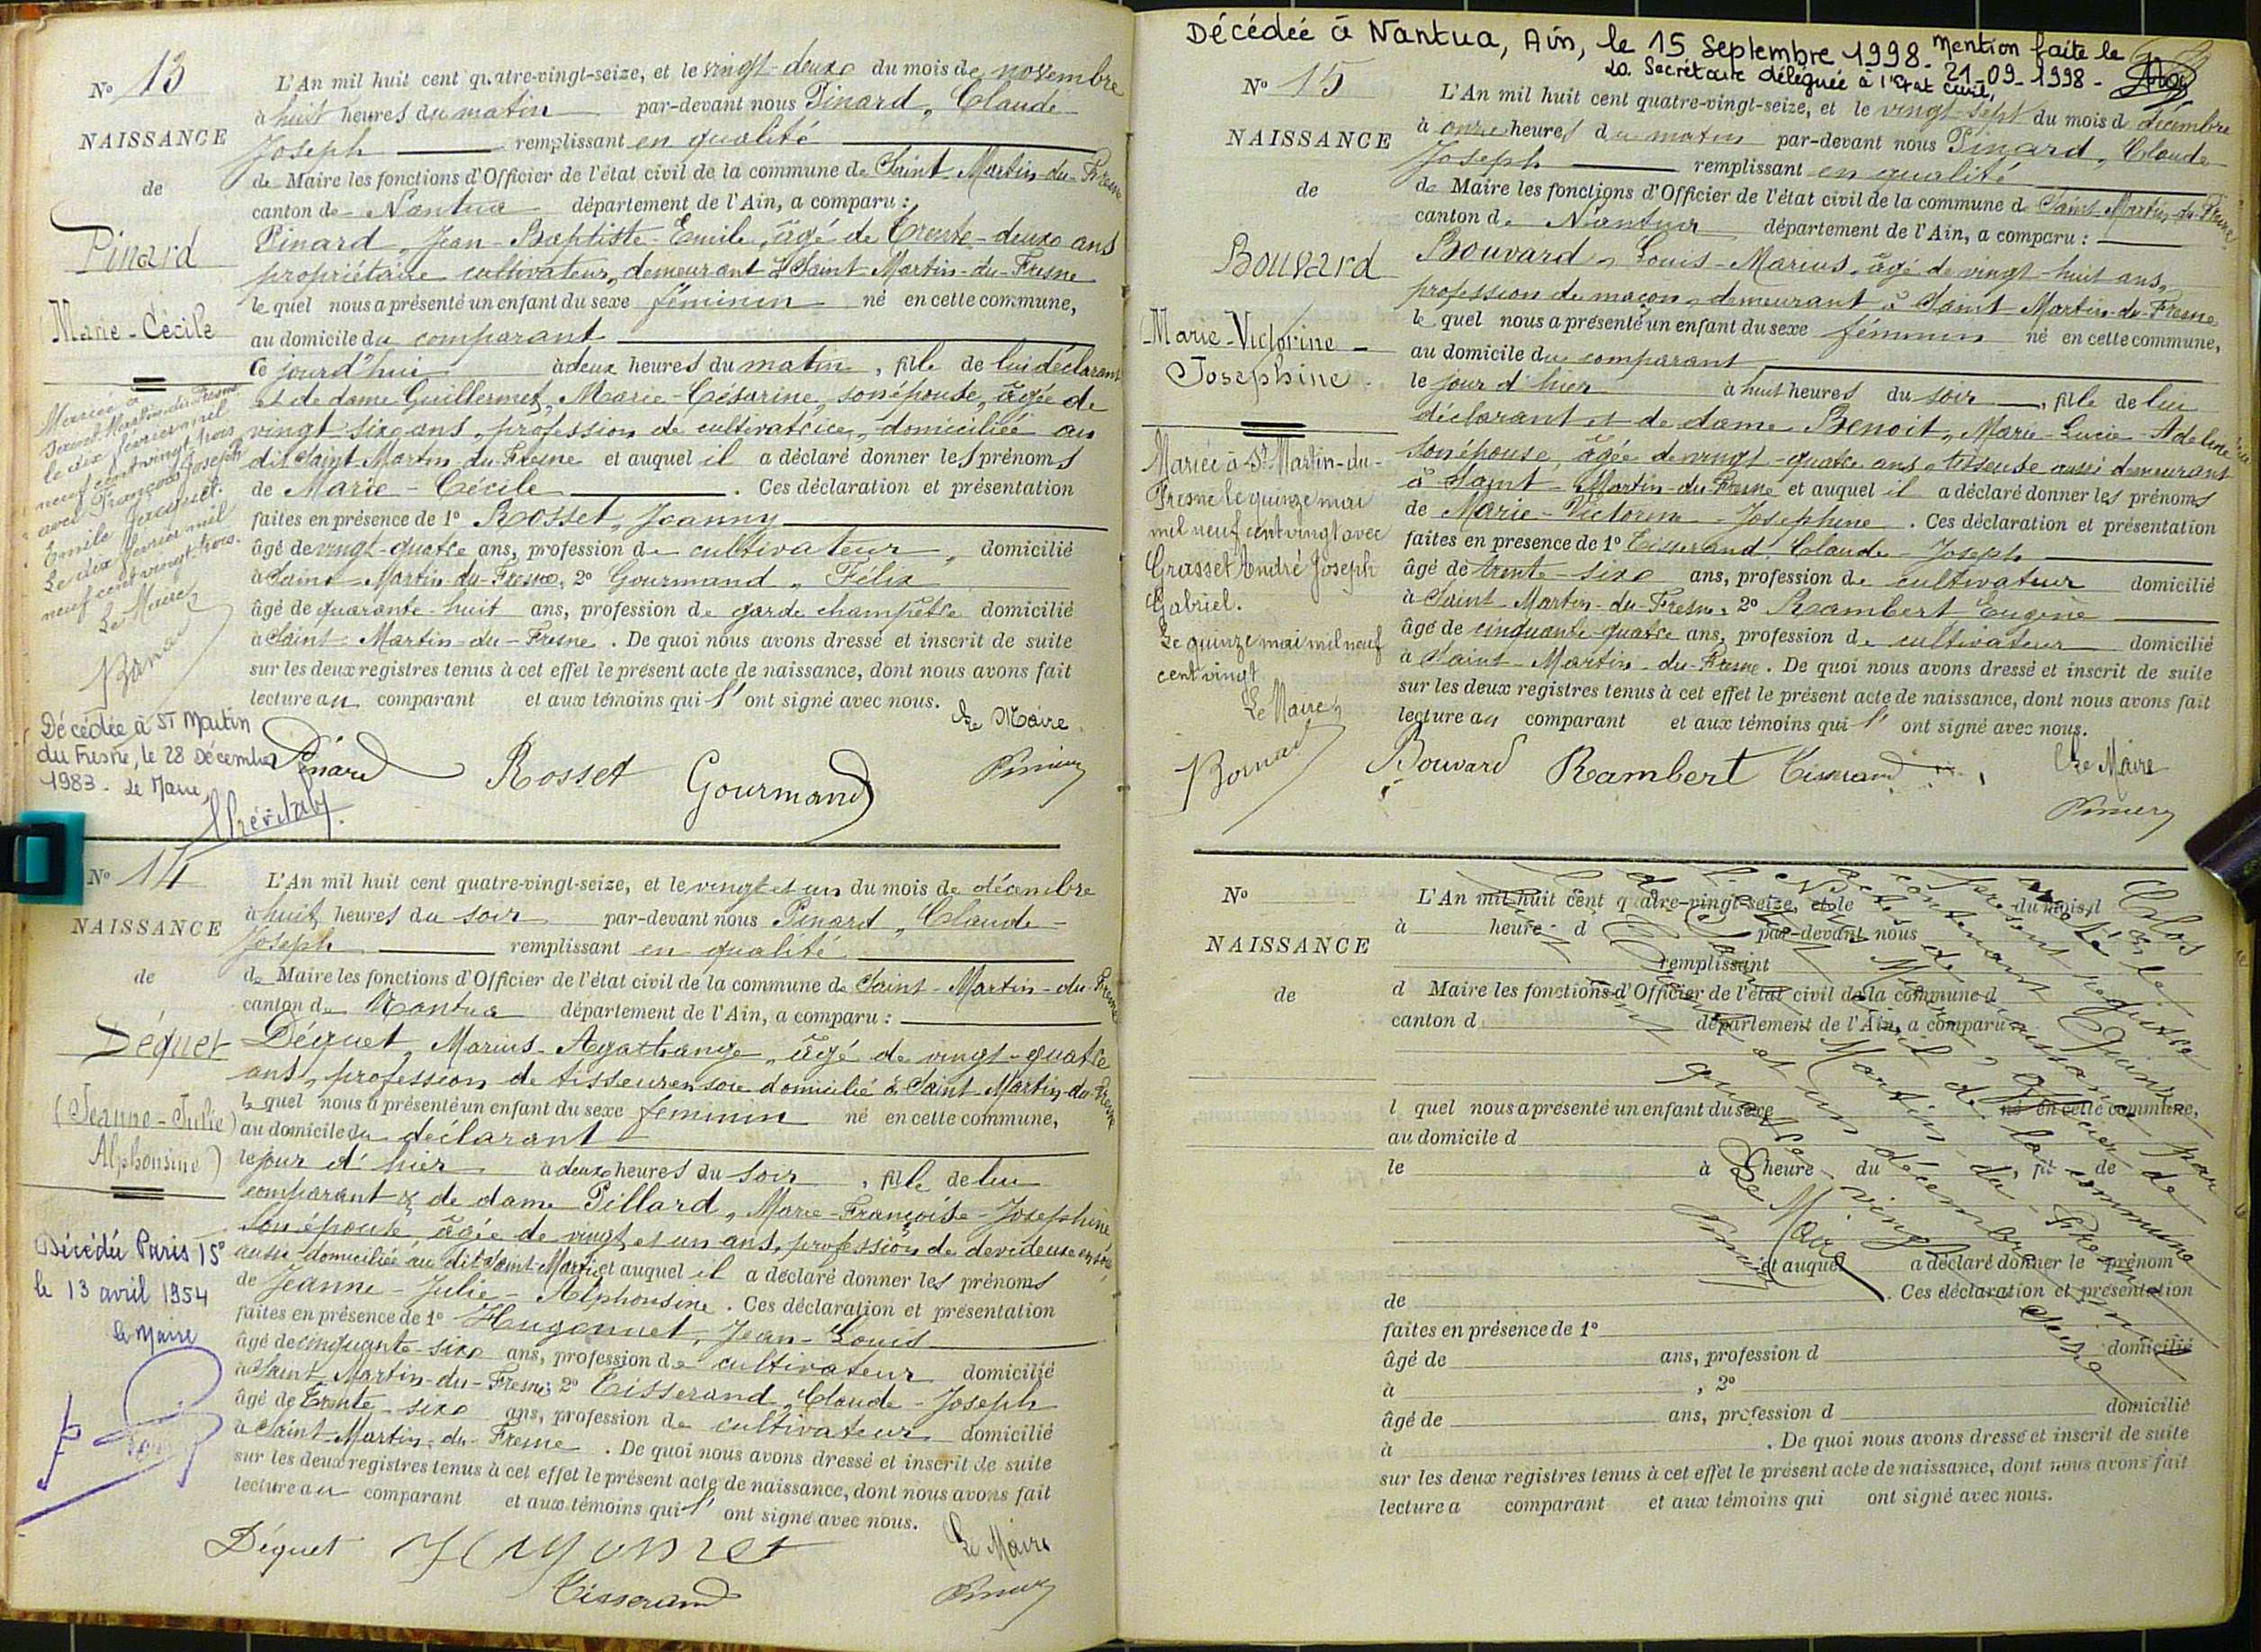 No 13
NAISSANCE
de
Pinard
Marie-Cécile
L'An mil huit cent quatre-vingt-seize, et le vingt-deux du mois de novembre
à huit heures du matin par-devant nous Pinard, Claude-
Joseph remplissant en qualité
de Maire les fonctions d'Officier de l'état civil de la commune de Saint-Martin-du-Fresne
canton de Nantua département de l'Ain, a comparu :
Pinard, Jean-Baptiste-Emile, âgé de Trente-deux ans
propriétaire cultivateur, demeurant à Saint-Martin-du-Fresne
le quel nous a présenté un enfant du sexe féminin né en cette commune,
au domicile du comparant
Ce jourd'hui à deux heures du matin, fille de lui déclarant
et de dame Guillermet, Marie-Césarine, son épouse, âgée de
vingt-six ans, profession de cultivatrice, domiciliée au
dit Saint-Martin-du-Fresne et auquel il a déclaré donner les prénoms
de Marie-Cécile. Ces déclaration et présentation
faites en présence de 1º Rosset, Joanny
âgé de vingt-quatre ans, profession de cultivateur, domicilié
à Saint-Martin-du-Fresne, 2º Gourmand, Félix
âgé de quarante-huit ans, profession de garde champêtre domicilié
à Saint-Martin-du-Fresne. De quoi nous avons dressé et inscrit de suite
sur les deux registres tenus à cet effet le présent acte de naissance, dont nous avons fait
lecture au comparant et aux témoins qui l'ont signé avec nous.
Le Maire
Pinard Rosset Gourmand
Mariée à
Saint Martin du Fresne
le dix février mil
neuf cent vingt trois
avec François Joseph
Emile Jacquet.
Le dix février mil
neuf cent vingt trois.
Le Maire
Décédée à ST Martin
du Fresne, le 28 Décembre
1983. Le Maire,
No 14
NAISSANCE
de
Déquet
(Jeanne-Julie
Alphonsine)
L'An mil huit cent quatre-vingt-seize, et le vingt et un du mois de décembre
à huit heures du soir par-devant nous Pinard, Claude-
Joseph remplissant en qualité
de Maire les fonctions d'Officier de l'état civil de la commune de Saint-Martin-du-Fresne
canton de Nantua département de l'Ain, a comparu :
Déquet, Marius-Agathange, âgé de vingt-quatre
ans, profession de tisseur en soie domicilié à Saint-Martin-du-Fresne
le quel nous a présenté un enfant du sexe féminin né en cette commune,
au domicile du déclarant
le jour d'hier à deux heures du soir, fille de lui
comparant & de dame Pillard, Marie-Françoise-Josephine
son épouse, âgée de vingt et un ans, profession de devideuse en soie,
aussi domiciliée au dit Saint-Martin et auquel il a déclaré donner les prénoms
de Jeanne-Julie-Alphonsine. Ces déclaration et présentation
faites en présence de 1º Hugonnet, Jean-Louis
âgé de cinquante-six ans, profession de cultivateur domicilié
à Saint-Martin-du-Fresne, 2º Tisserand, Claude-Joseph
âgé de Trente-six ans, profession de cultivateur domicilié
à Saint-Martin-du-Fresne. De quoi nous avons dressé et inscrit de suite
sur les deux registres tenus à cet effet le présent acte de naissance, dont nous avons fait
lecture au comparant et aux témoins qui l'ont signé avec nous.
Déquet Hugonnet Le Maire
Tisserand
Décédée Paris 15e
le 13 avril 1954
le Maire
Décédée à Nantua, Ain, le 15 Septembre 1998. Mention faite le
21-09-1998-
La Secrétaire déléguée à l'Etat Civil,
No 15
NAISSANCE
de
Bouvard
Marie-Victorine-
Josephine
L'An mil huit cent quatre-vingt-seize, et le vingt-sept du mois de décembre
à onze heures du matin par-devant nous Pinard, Claude
Joseph remplissant en qualité
de Maire les fonctions d'Officier de l'état civil de la commune de Saint-Martin-du-Fresne
canton de Nantua département de l'Ain, a comparu :
Bouvard, Louis-Marius, âgé de vingt-huit ans,
profession de maçon, demeurant à Saint-Martin-du-Fresne
le quel nous a présenté un enfant du sexe féminin né en cette commune,
au domicile du comparant
le jour d'hier à huit heures du soir, fille de lui
déclarant et de dame Benoit, Marie-Lucie-Adeline
son épouse, âgée de vingt-quatre ans, tisseuse aussi demeurant
à Saint-Martin-du-Fresne et auquel il a déclaré donner les prénoms
de Marie-Victorine-Josephine. Ces déclaration et présentation
faites en présence de 1º Tisserand, Claude-Joseph
âgé de trente-six ans, profession de cultivateur domicilié
à Saint-Martin-du-Fresne, 2º Rambert Eugène
âgé de cinquante-quatre ans, profession de cultivateur domicilié
à Saint-Martin-du-Fresne. De quoi nous avons dressé et inscrit de suite
sur les deux registres tenus à cet effet le présent acte de naissance, dont nous avons fait
lecture au comparant et aux témoins qui l'ont signé avec nous.
Bouvard Rambert Tisserand Le Maire
Mariée à St Martin-du-
Fresne le quinze mai
mil neuf cent vingt avec
Grasset André Joseph
Gabriel.
Le quinze mai mil neuf
cent vingt
Le Maire
No
NAISSANCE
de
L'An mil huit cent quatre-vingt-seize, et le du mois d
à heure d par-devant nous
remplissant
d Maire les fonctions d'Officier de l'état civil de la commune d
canton d département de l'Ain, a comparu
l quel nous a présenté un enfant du sexe né en cette commune,
au domicile d
le à heure du , fil de
et auquel a déclaré donner le prénom
de . Ces déclaration et présentation
faites en présence de 1º
âgé de ans, profession d domicilié
à , 2º
âgé de ans, profession d domicilié
à . De quoi nous avons dressé et inscrit de suite
sur les deux registres tenus à cet effet le présent acte de naissance, dont nous avons fait
lecture a comparant et aux témoins qui ont signé avec nous.
Clos
présent registre
contenant Quinze
actes de naissance par
Nous Maire Officier de
l'Etat civil de la commune
de Saint Martin-du-Fresne
trente et un décembre mil
huit cent quatre vingt Seize
Le Maire